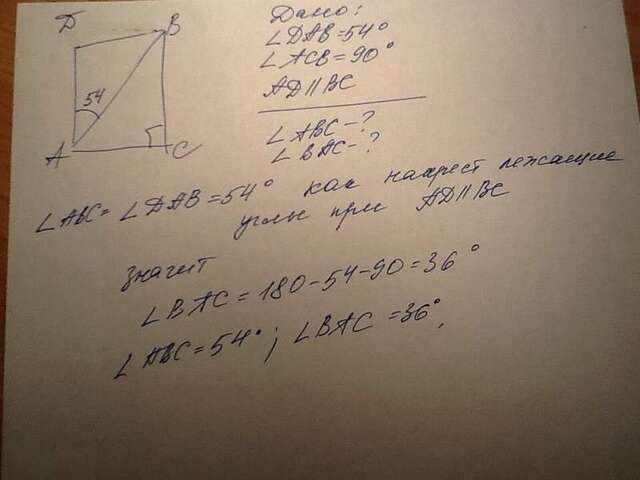 D
B
54
A
C
Дано:
∠DAB=54°
∠ACB=90°
AD||BC
∠ABC-?
∠BAC-?
∠ABC=∠DAB=54° как накрест лежащие
углы при AD||BC
значит
∠BAC=180-54-90=36°
∠ABC=54°; ∠BAC=36°.